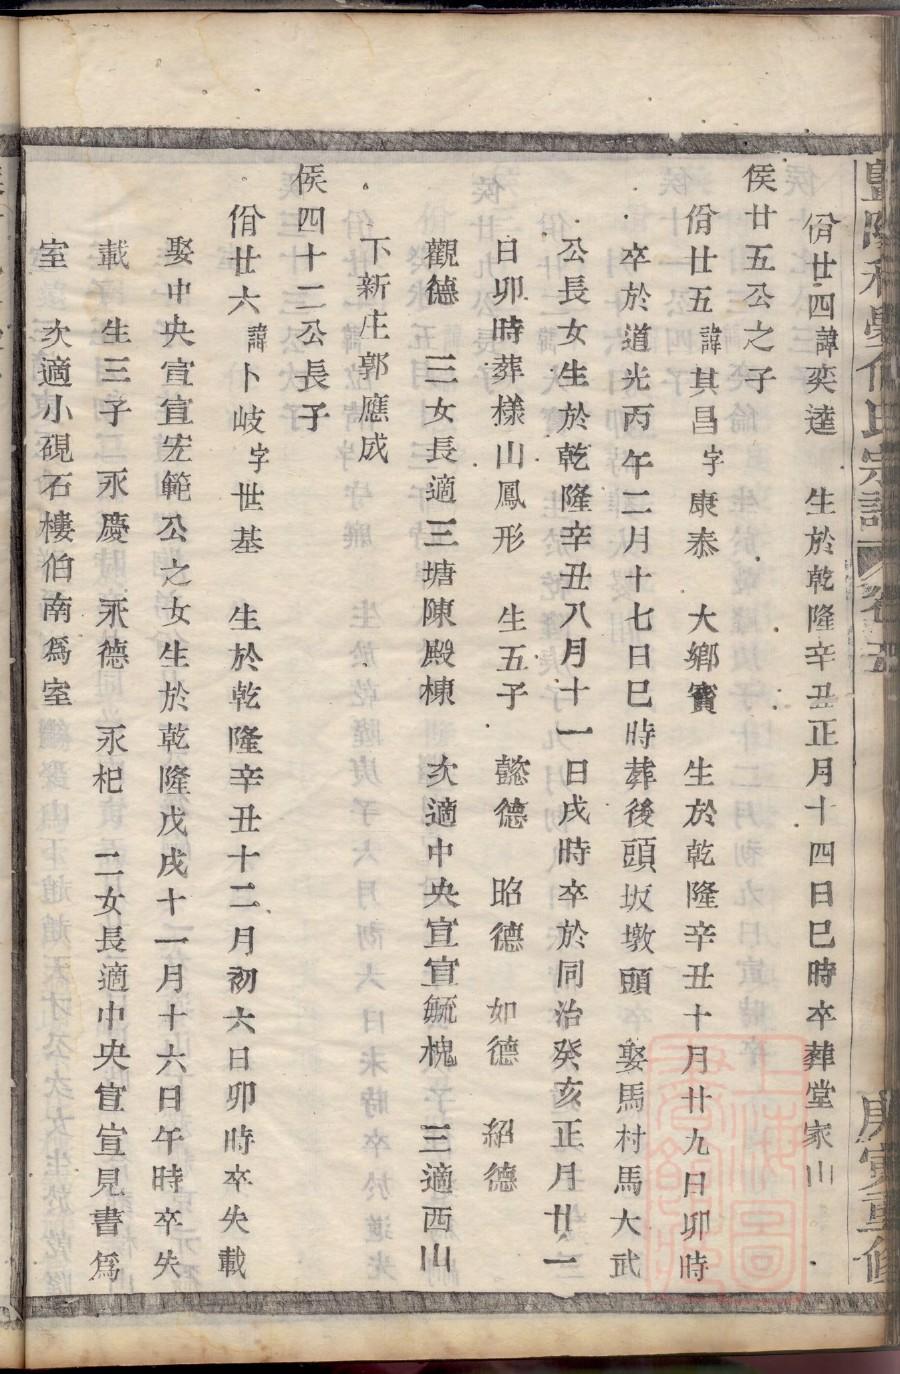 佾廿四諱奕逵 生於乾隆辛丑正月十四日巳時卒葬堂家山
侯廿五公之子
佾廿五諱其昌字康泰 大鄉賓 生於乾隆辛丑十月廿九日卯時
卒於道光丙午二月十七日巳時葬後頭坂墩頭 娶馬村馬大武
公長女生於乾隆辛丑八月十一日戌時卒於同治癸亥正月廿一
日卯時葬樣山鳳形 生五子 懿德 昭德 如德 紹德
觀德 三女長適三塘陳殿棟 次適中央宣宣毓槐 三適西山
下新庄郭應成
侯四十二公長子
佾廿六諱卜岐字世基 生於乾隆辛丑十二月初六日卯時卒失載
娶中央宣宣宏範公之女生於乾隆戊戌十一月十六日午時卒失
載 生三子永慶 永德 永杞 二女長適中央宣宣見書爲
室 次適小硯石樓伯南爲室
庚寅重修